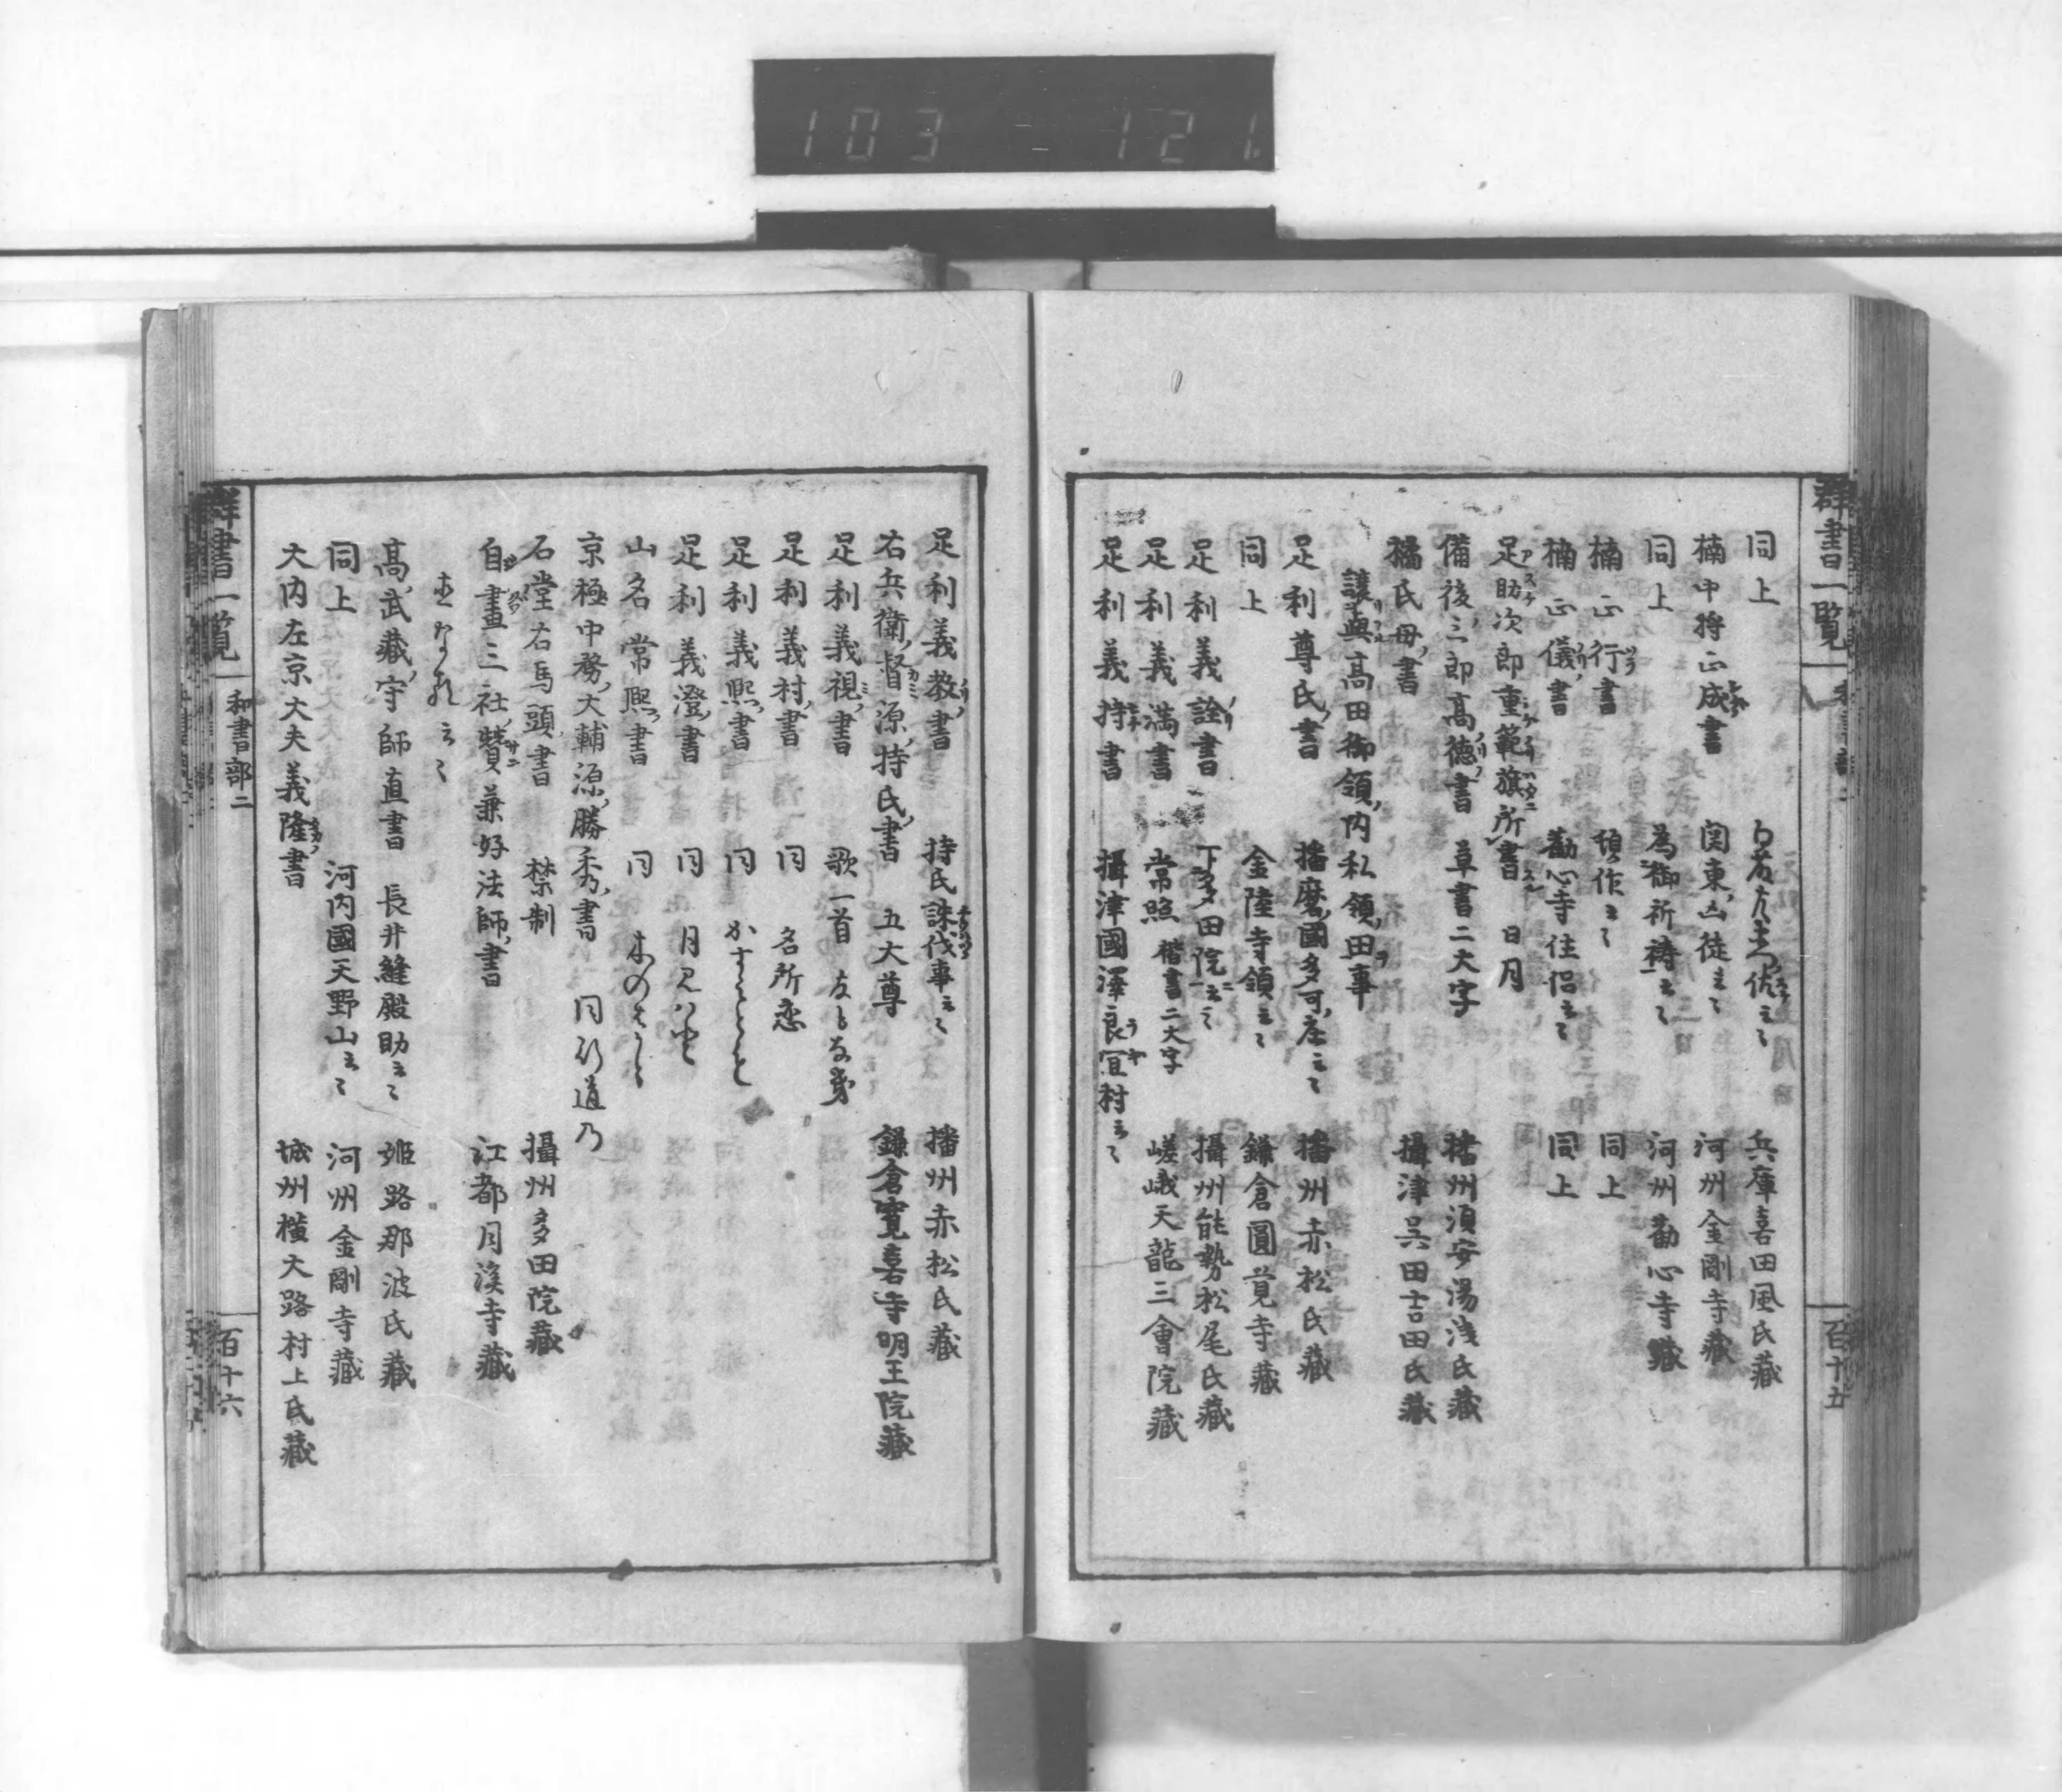 103 - 121
群書一覧
百十五
同上 云〻 兵庫喜田風氏藏
楠中将正成書 関東凶徒云〻 河州金剛寺藏
同上 為御祈祷云〻 河州勸心寺藏
楠正行書 云〻 同上
楠正儀書 勸心寺住侶云〻 同上
足助次郎重範旗所書 日月
備後三郎高徳書 草書二大字 播州須安湯浅氏藏
橘氏母書 攝津呉田吉田氏藏
譲與高田御領内私領田事
足利尊氏書 播磨國多可庄云〻 播州赤松氏藏
同上 金陸寺領云〻 鎌倉圓覚寺藏
足利義詮書 下多田院云〻 攝州能勢松尾氏藏
足利義満書 常照 楷書二大字 嵯峨天龍三會院藏
足利義持書 攝津國澤良宜村云〻
足利義教書 持氏誅伐事云〻 播州赤松氏藏
右兵衛督源持氏書 五大尊 鎌倉寛喜寺明王院藏
足利義視書 歌一首
足利義村書 同 名所恋
足利義熙書 同
足利義澄書 同
山名常熙書 同
京極中務大輔源勝秀書 同
石堂右馬頭書 禁制 攝州多田院藏
自畫三社賛兼好法師書 江都月溪寺藏
云〻
高武藏守師直書 長井縫殿助云〻 姫路那波氏藏
同上 河内國天野山云〻 河州金剛寺藏
大内左京大夫義隆書 城州横大路村上氏藏
群書一覧
和書部二
百十六